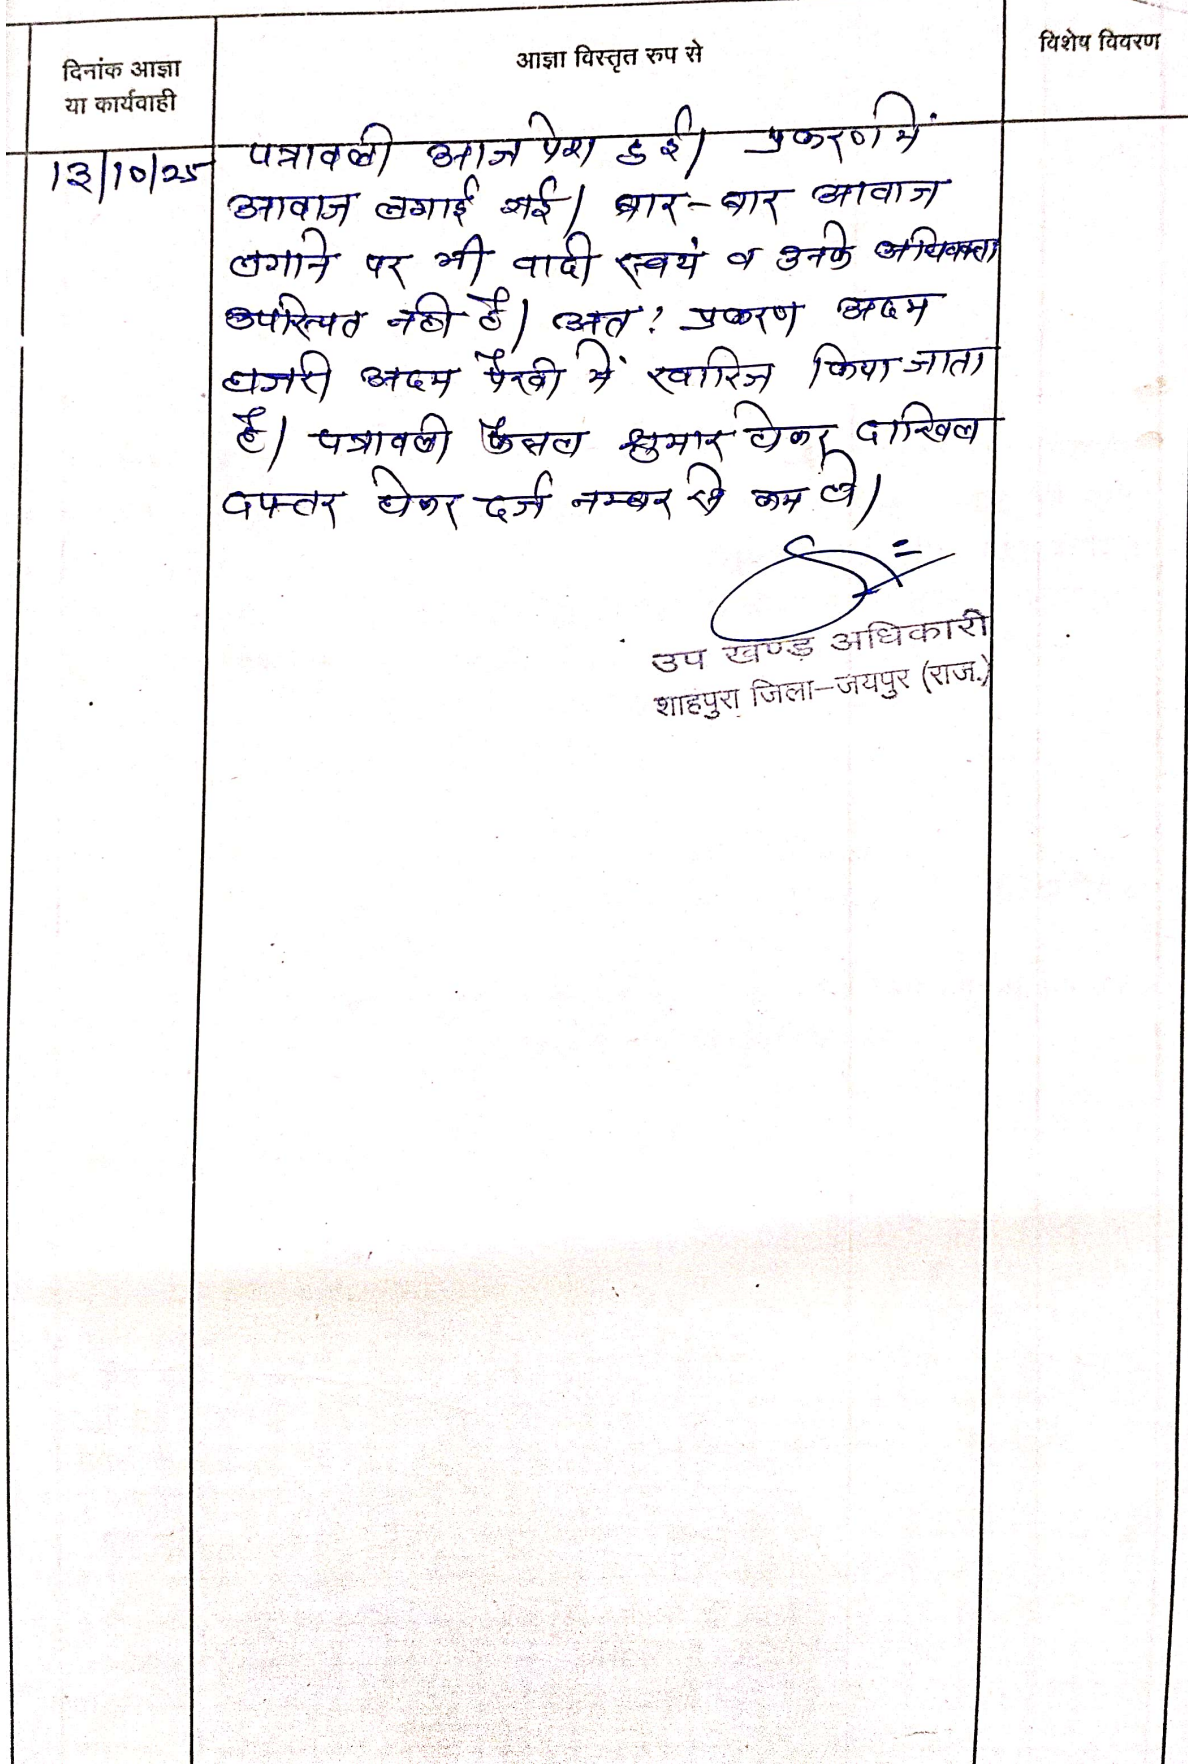 दिनांक आज्ञा
या कार्यवाही
आज्ञा विस्तृत रुप से
विशेष विवरण
13/10/25
पत्रावली आज पेश हुई। प्रकरण में
आवाज लगाई गई। बार-बार आवाज
लगाने पर भी वादी स्वयं व उनके अधिवक्ता
उपस्थित नही है। अत: प्रकरण अदम
हाजरी अदम पैरवी में खारिज किया जाता
है। पत्रावली फैसल शुमार होकर दाखिल
दफ्तर होकर दर्ज नम्बर से कम हो।
उप खण्ड अधिकारी
शाहपुरा जिला-जयपुर (राज.)